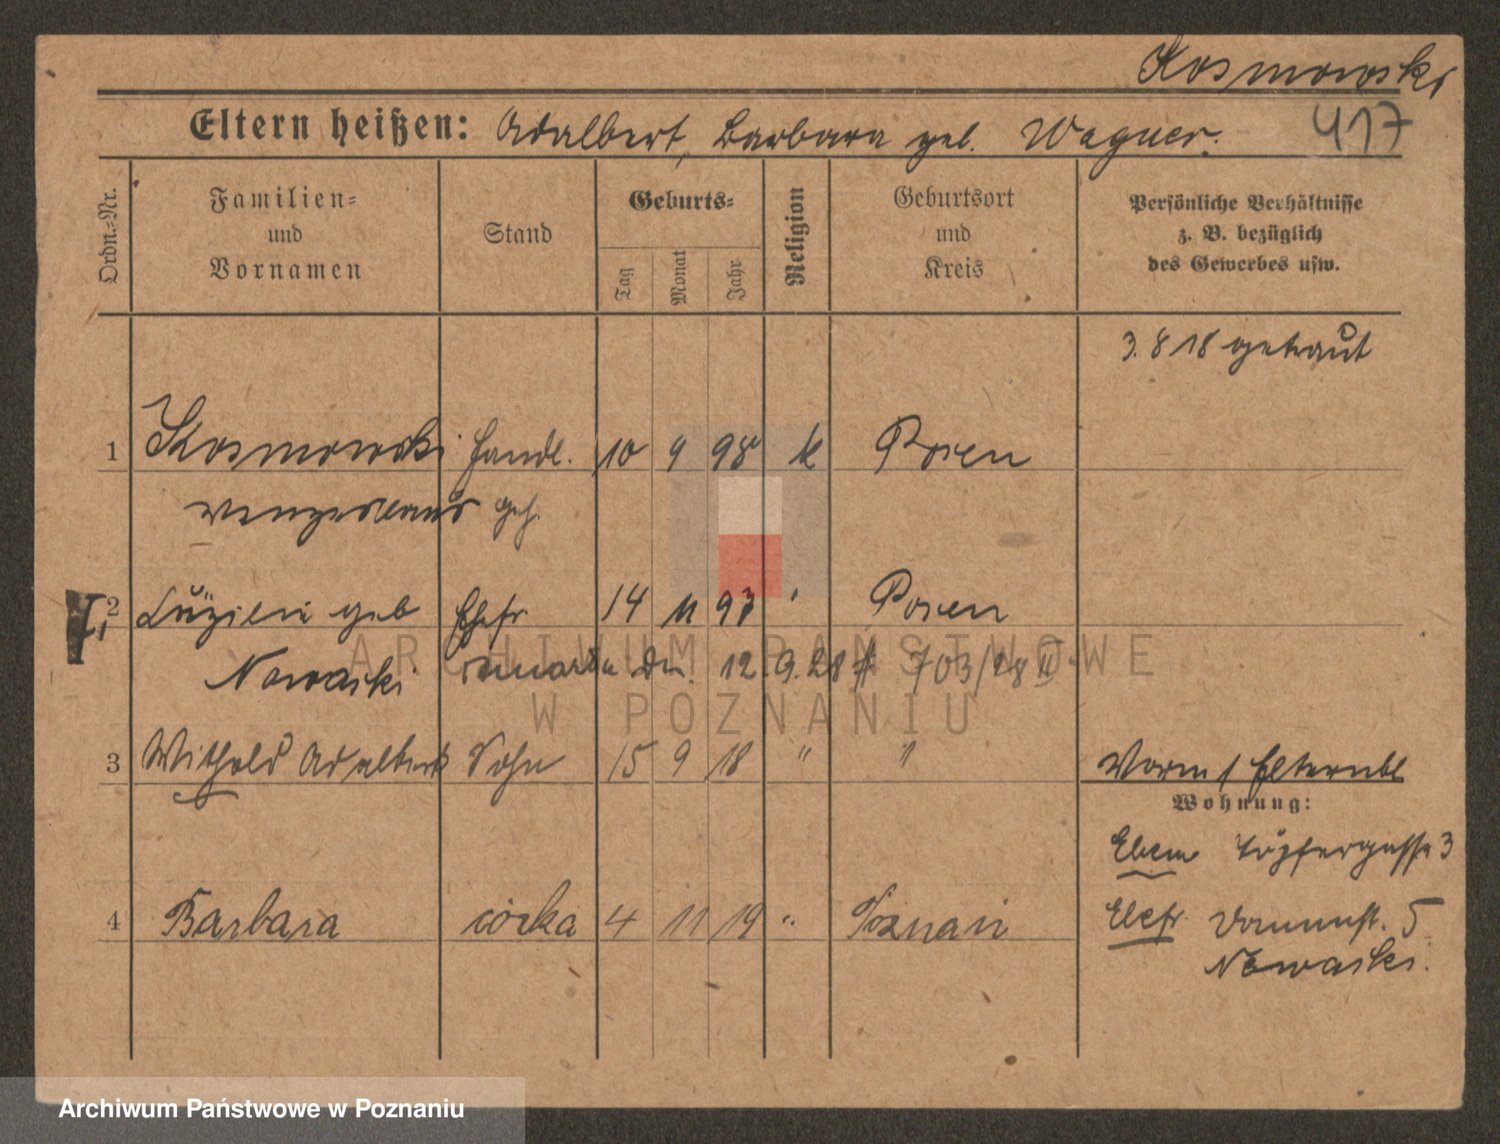 Kosmowski
417
Eltern heißen: Adalbert, Barbara geb. Wagner.
Ordn.-Nr.
Familien-
und
Vornamen
Stand
Geburts-
Tag
Monat
Jahr
Religion
Geburtsort
und
Kreis
Persönliche Verhältnisse
z. B. bezüglich
des Gewerbes usw.
3.8 18 getraut
1 Kosmowski Handl. 10 9 98 k Posen
Wenzeslaus Geh.
2 Luzilie geb Ehefr. 14 11 97 Posen
Nowaski 12.9.28 703/28 II
3 Withold Adalbert Sohn 15 9 18 " "
Vorm / Elternbl
Wohnung:
Ebem Töpfergasse 3
4 Barbara córka 4 11 19 " Poznań
Elefr 5
Nowaski.
ARCHIWUM PAŃSTWOWE
W POZNANIU
Archiwum Państwowe w Poznaniu